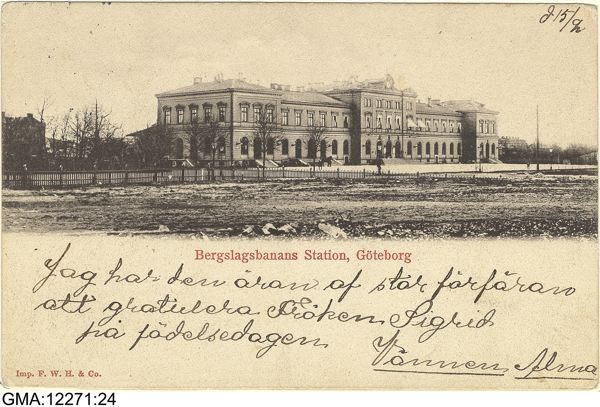 d 15/9
Bergslagsbanans Station, Göteborg
Jag har den äran af stor förfäran
att gratulera Fröken Sigrid
på födelsedagen
Vännen Alma
Imp. F. W. H. & Co.
GMA:12271:24